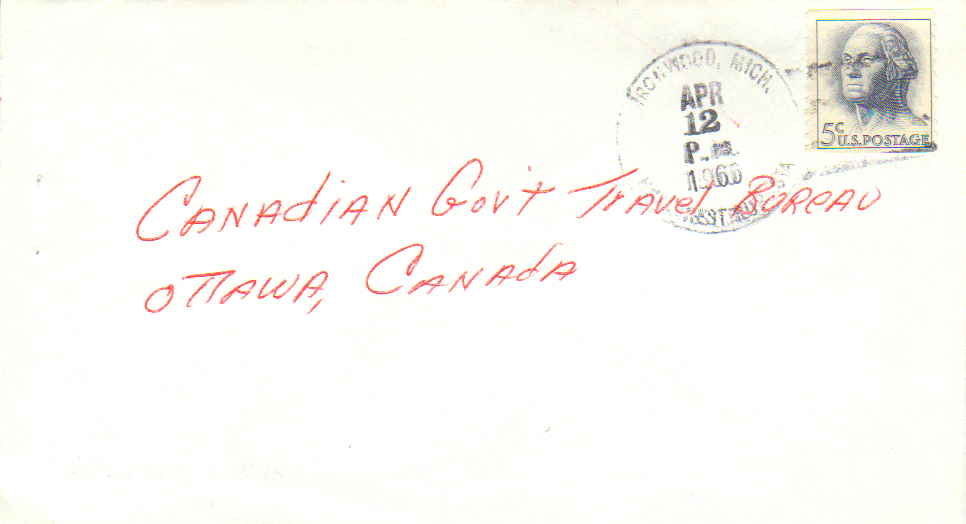 IRONWOOD, MICH.
APR
12
P.M.
1966
5c
U.S. POSTAGE
CANAdiAN Gov't TrAvel BUREAU
OTTAWA, CANAdA